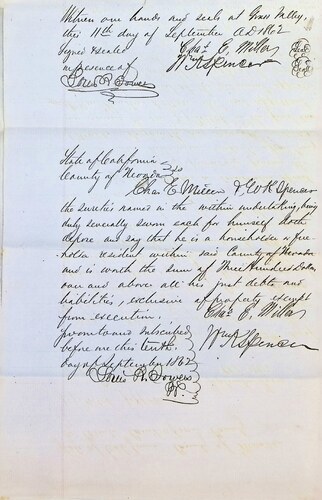 Witness our hands and seals at Grass Valley,
this 11th day of September A.D. 1862
Signed & sealed Chas. E. Miller Seal
in presence of Wm K Spencer Seal
Louis R. Sowers
State of California
County of Nevada } ss
Chas E. Miller & W K Spencer
the sureties named in the within undertaking, being
duly severally sworn each for himself doth
depose and say that he is a householder or free-
holder resident within said County of Nevada
and is worth the sum of Three Hundred Dolrs
over and above all his just debts and
liabilities, exclusive of property exempt
from execution. Chas. E. Miller
Sworn to and subscribed Wm K Spencer
before me this tenth
day of September 1862
Louis R. Sowers